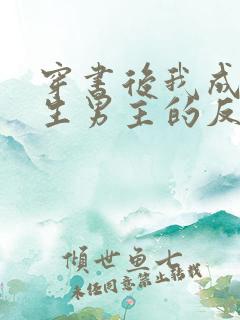 穿书后我成
生男主的反
倾世鱼七
未经同意禁止转载